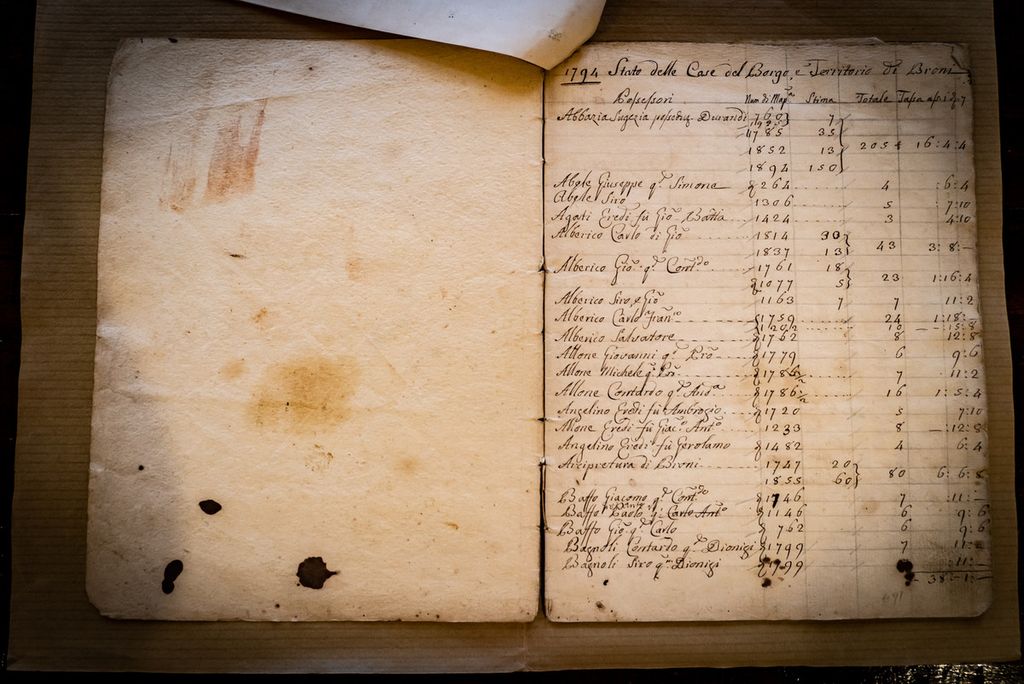 1794 Stato delle Case del Borgo, e Territorio di Broni
Possessori Num di Mapa Stima Totale Tassa
Abbazia possessruz Durandi 760
1785 35
1852 13 205 16:4:4
1894 150
Abele Giuseppe q.m Simone 264 4 :6:4
Abele Siro 1306 5 7:10
Agati Eredi fù Gio. Batta 1424 3 4:10
Alberico Carlo di Gio 1814 30
1837 13 43 3:8:—
Alberico Gio. q.m Cont.do 1761 18
1077 5 23 1:16:4
Alberico Siro, e Gio 1163 7 7 11:2
Alberico Carlo Fran.co 1759 24 1:18:—
1202 10 —15:8
Alberico Salvatore 1762 8 12:8
Allone Giovanni q.m 1779 6 9:6
Allone Michele q.m 1786 1/2 7 11:2
Allone Contardo q.m 1786 1/2 16 1:5:4
Angelino Eredi fù Ambrogio 1720 5 7:10
Allone Eredi fù Giac.o Ant.o 1233 8 —:12:8
Angelino Eredi fù Gerolamo 1482 4 6:4
Arcipretura di Broni 1747 20
1855 60 80 6:6:8
Baffo Giacomo q.m Cont.do 1746 7 :11:—
Baffo Paolo q. Carlo Ant.o 1146 6 9:6
Baffo Gio. q.m Carlo 762 6 9:6
Bagnoli Contardo q.m Dionigi 1799 7 11:—
Bagnoli Siro q.m Dionigi 1799 :11:—
—38:1:—